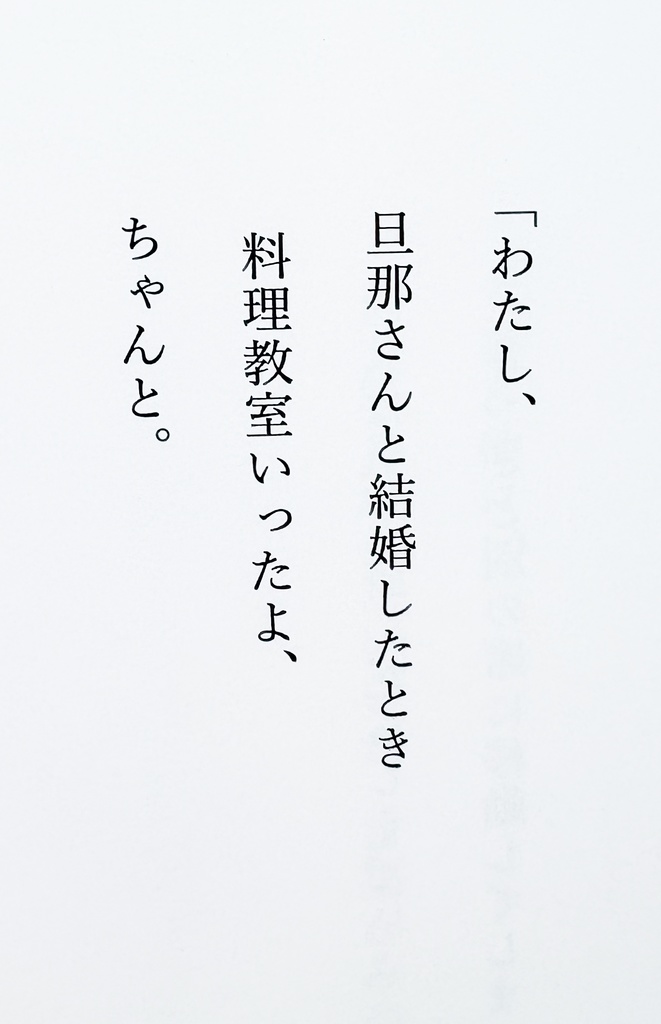 「わたし、
旦那さんと結婚したとき
料理教室いったよ、
ちゃんと。